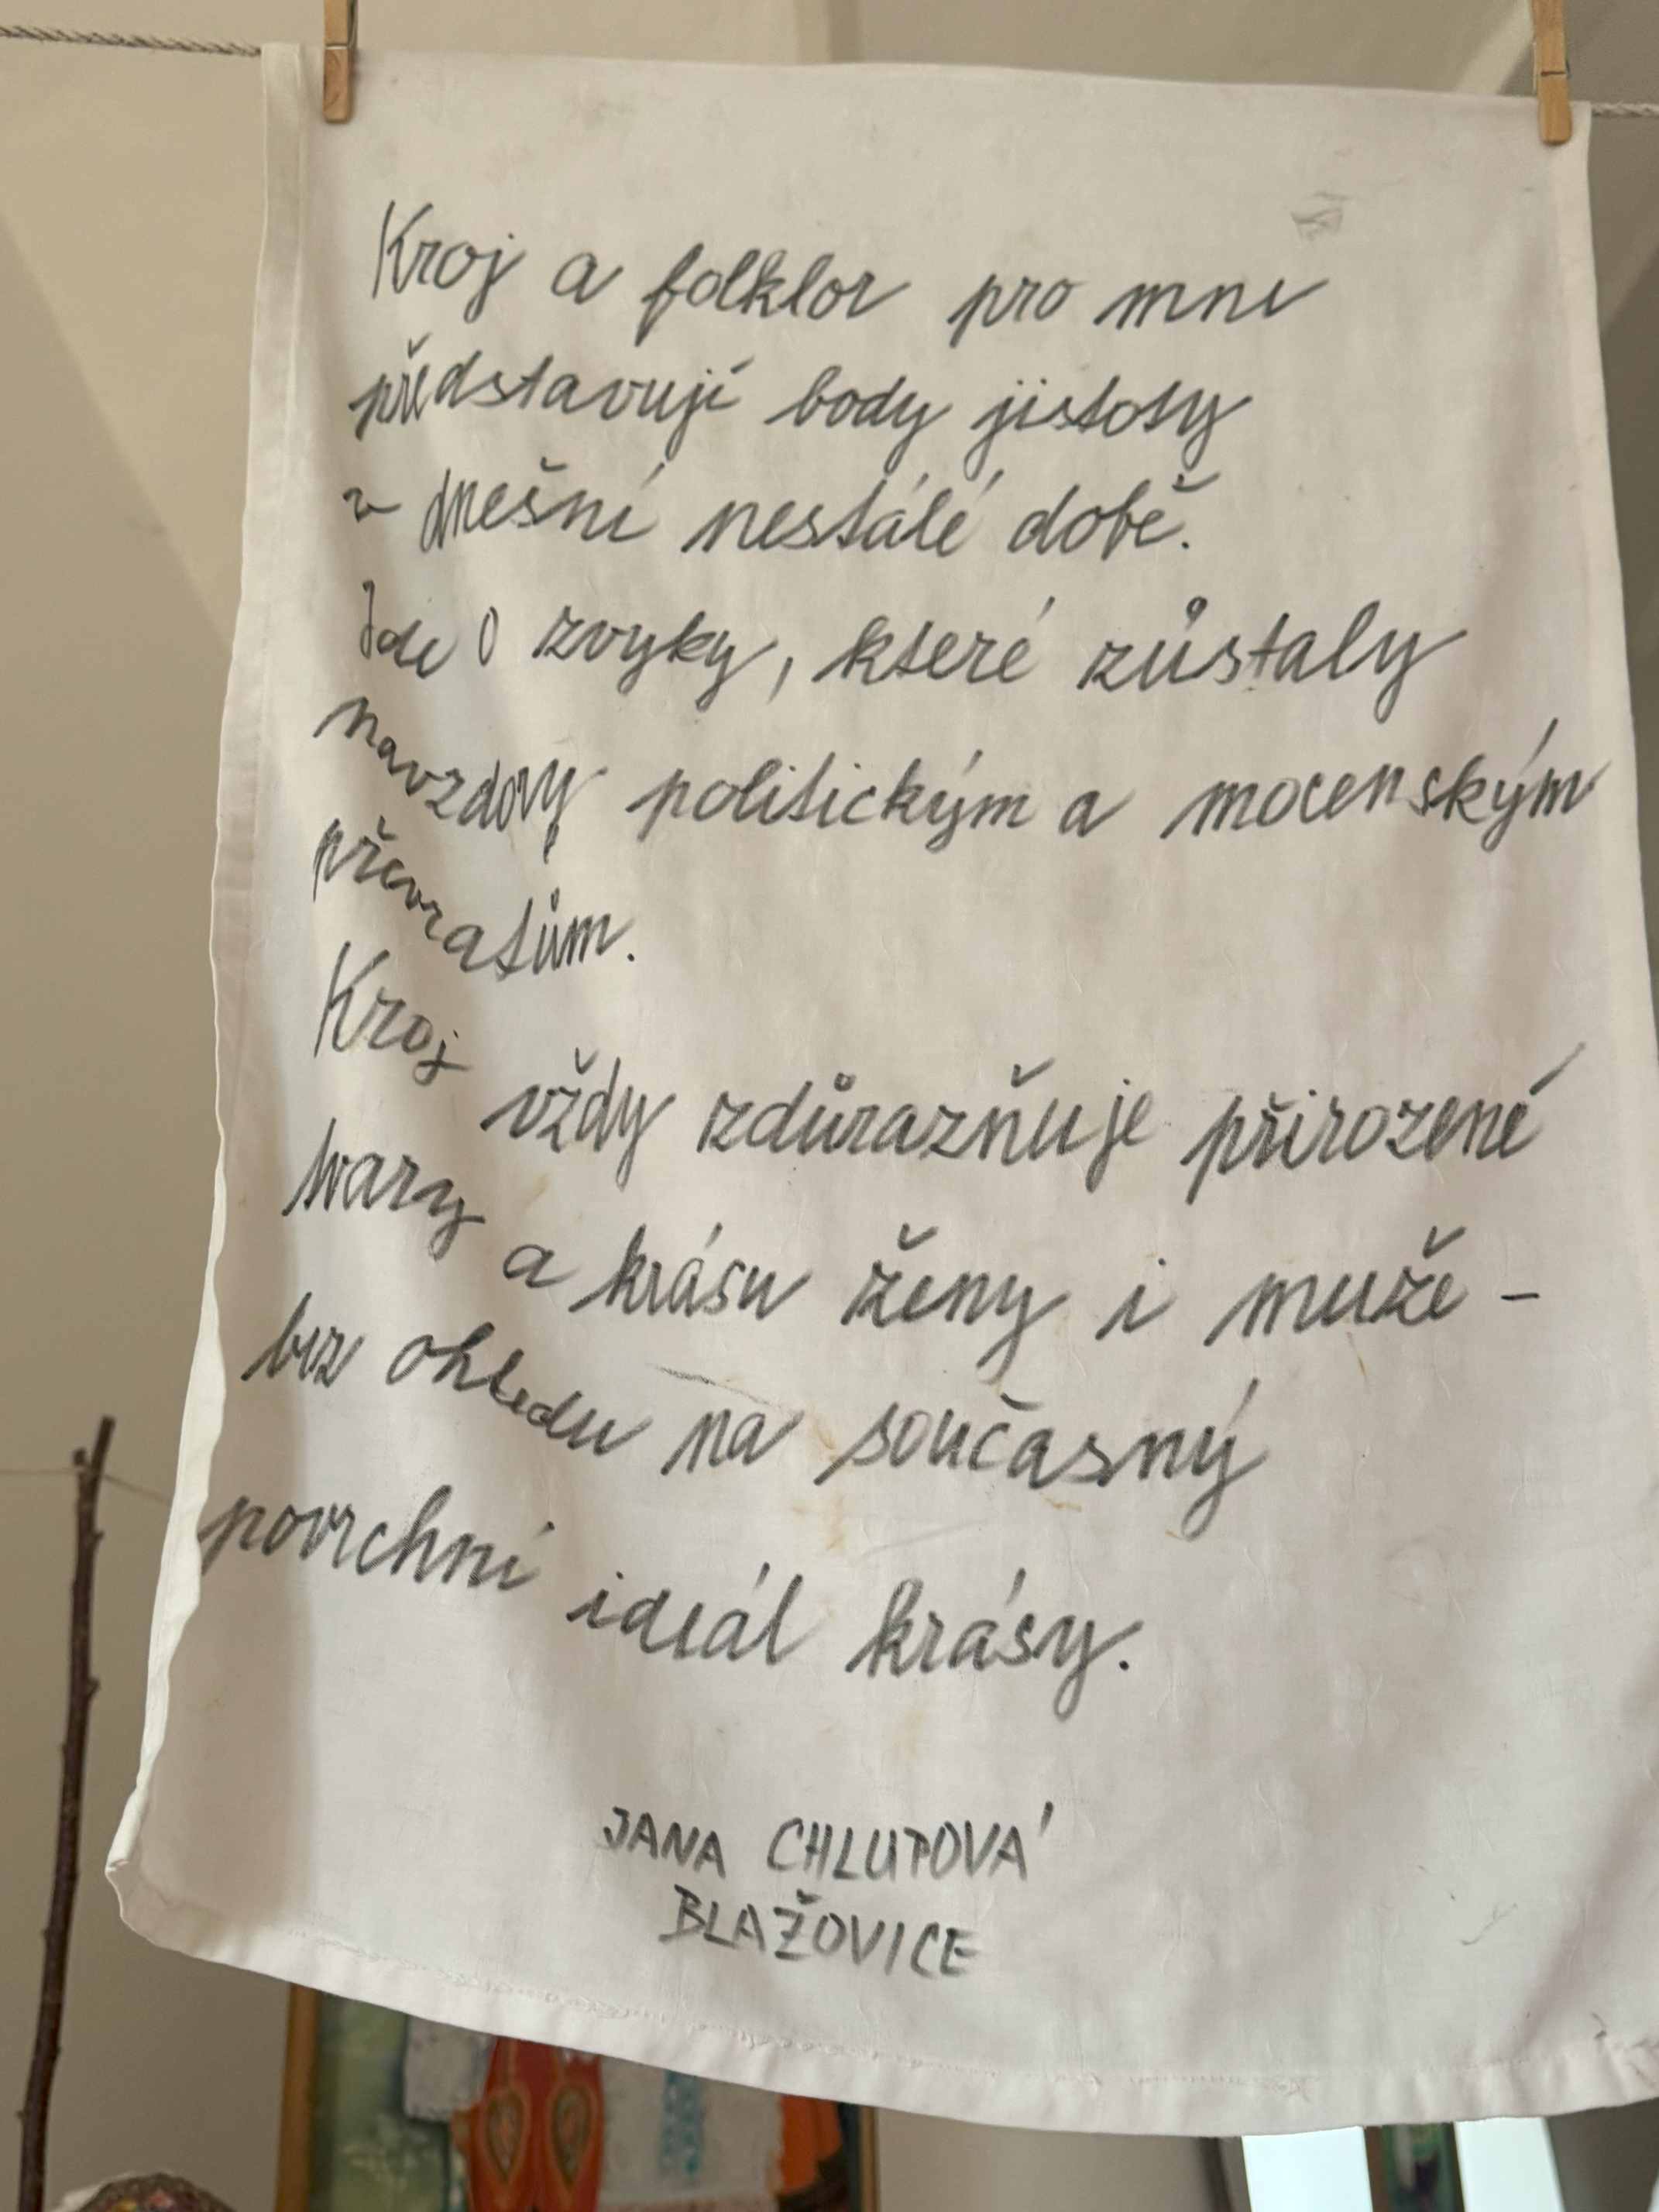 Kroj a folklor pro mne
představují body jistoty
v dnešní nestálé době.
Jde o zvyky, které zůstaly
navzdory politickým a mocenským
převratům.
Kroj vždy zdůrazňuje přirozené
tvary a krásu ženy i muže -
bez ohledu na současný
povrchní ideál krásy.
JANA CHLUPOVÁ
BLAŽOVICE